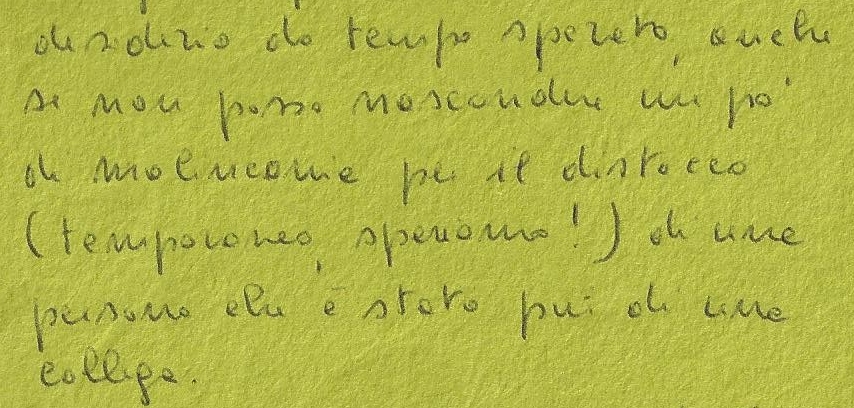 desiderio da tempo sperato, anche
se non posso nascondere un po'
di malinconia per il distacco
(temporaneo, speriamo!) di una
persona che è stata più di una
collega.